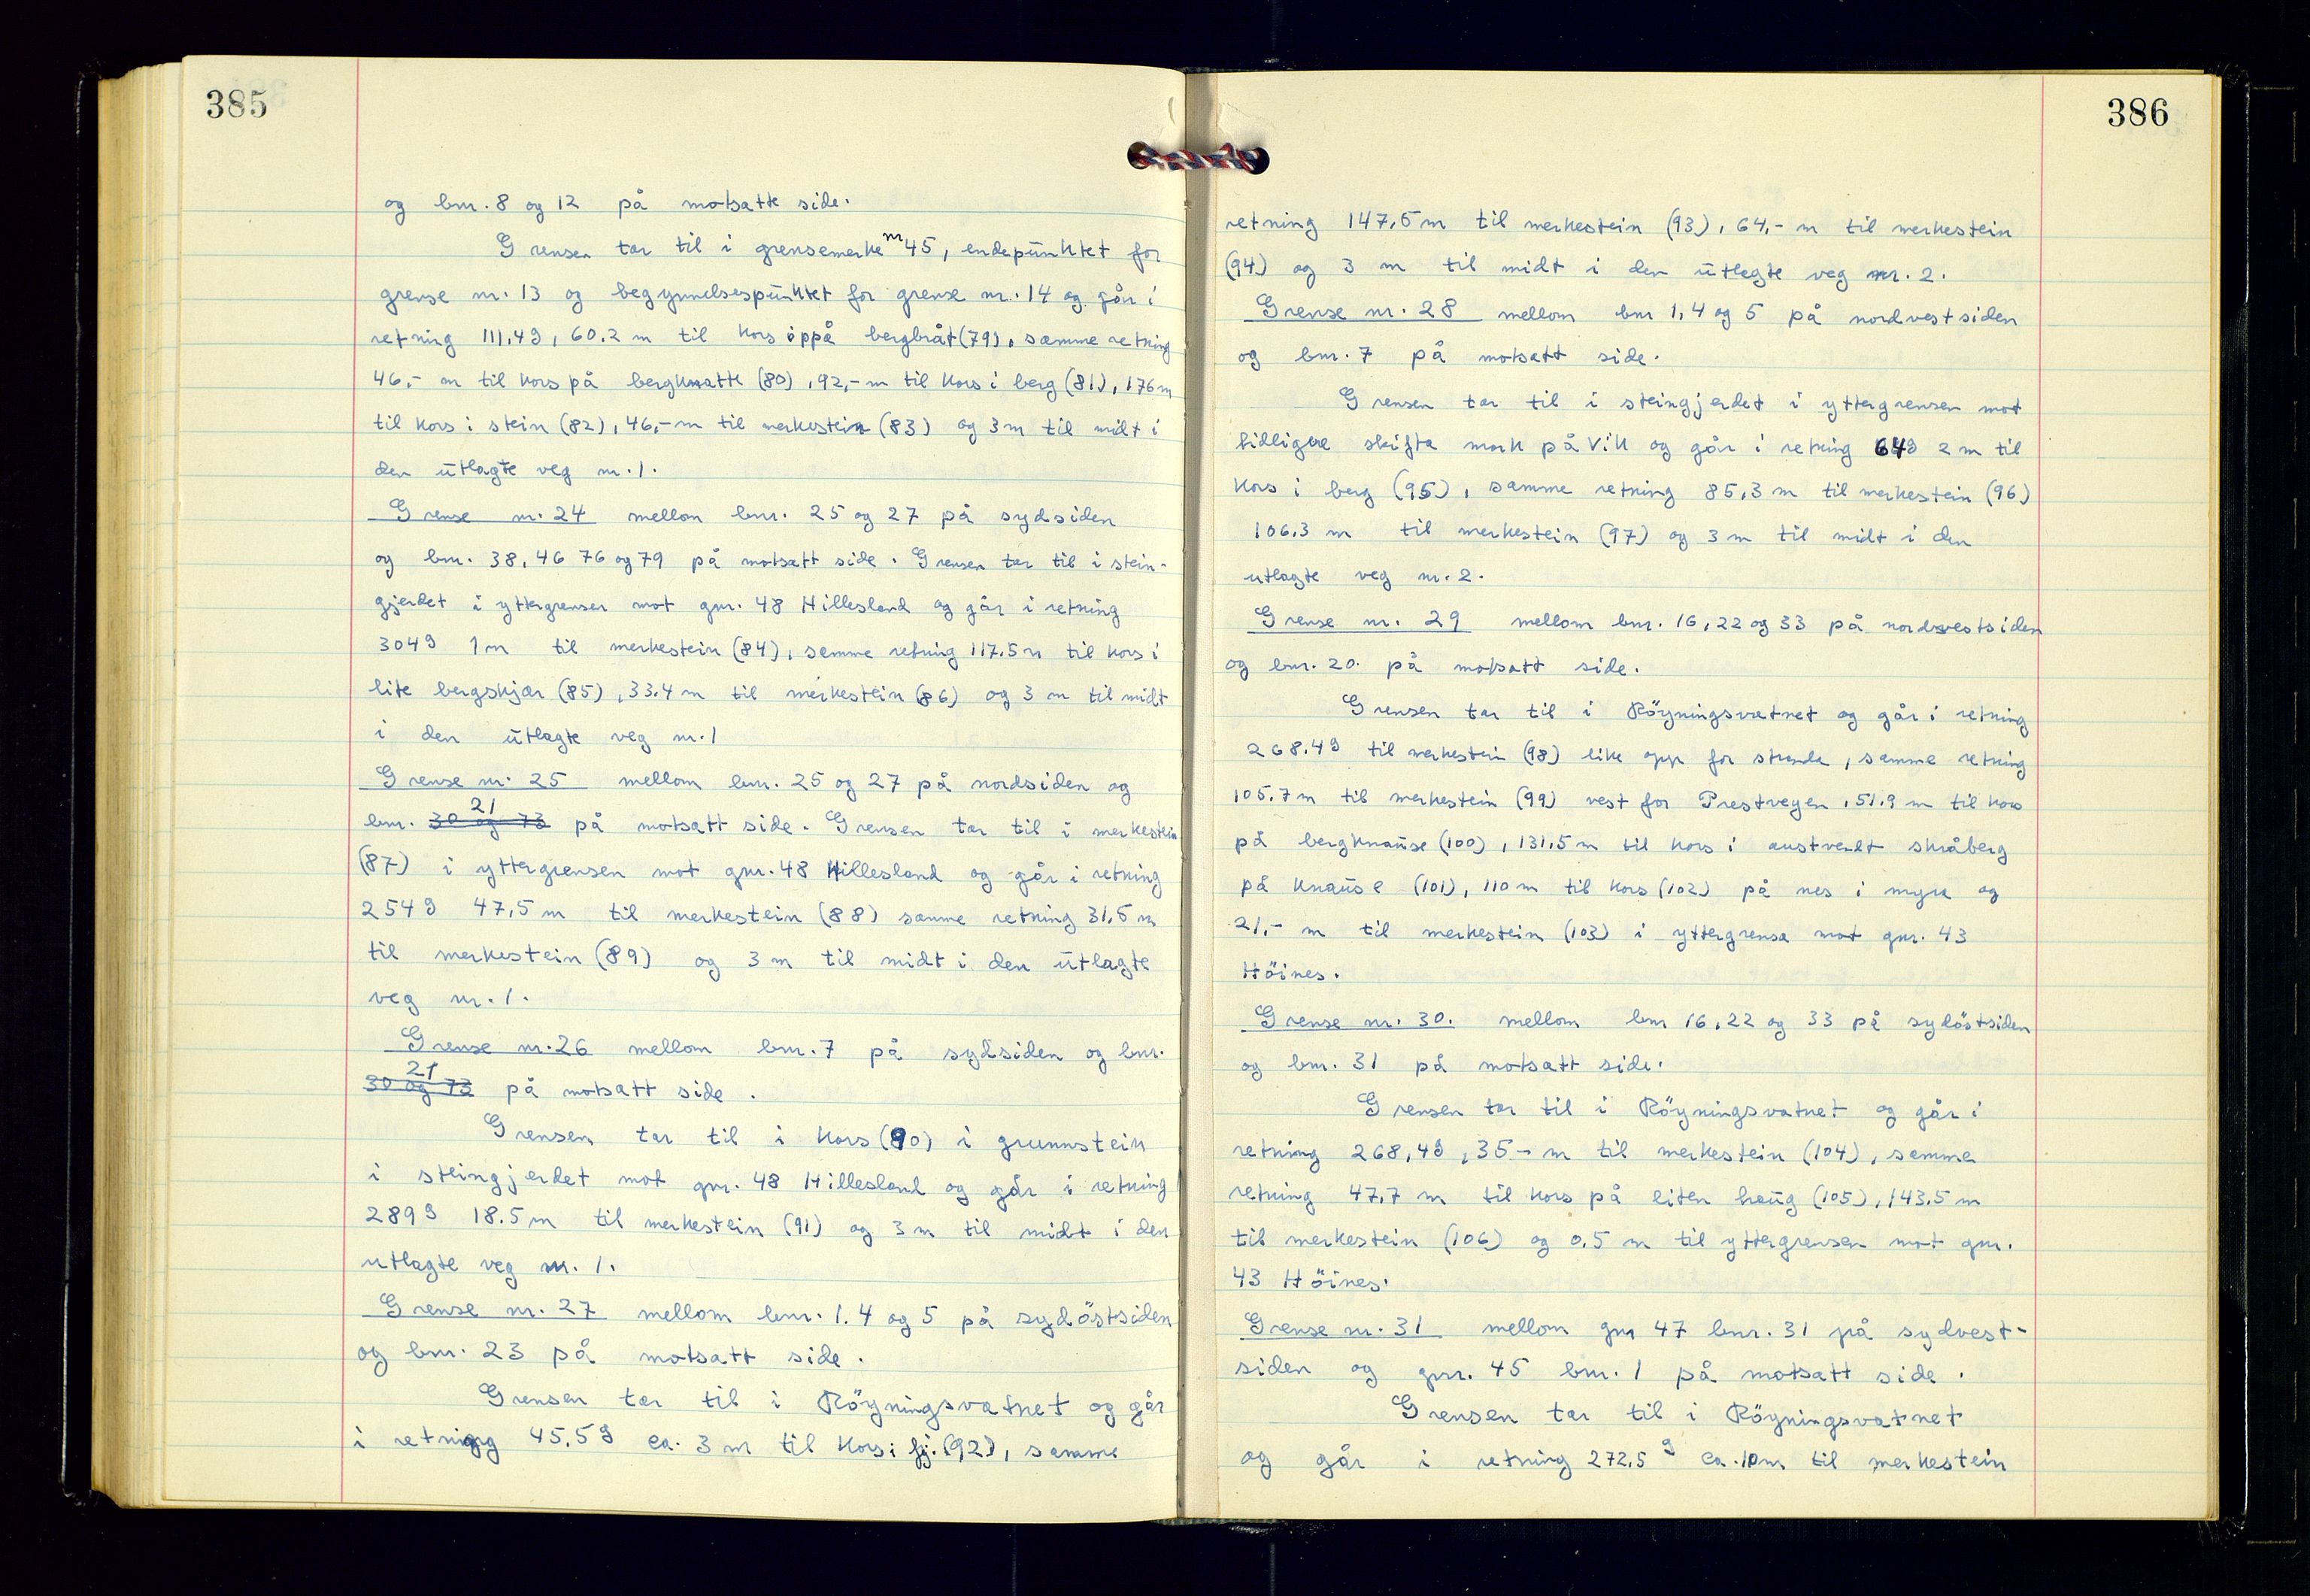 385
og bnr. 8 og 12 på motsatte side.
Grensen tar til i grensemerke nr 45, endepunktet for
grense nr. 13 og begynnelsespunktet for grense nr. 14 og går i
retning 111,4g, 60.2 m til kors oppå bergbråt (79), samme retning
46,- m til kors på bergknatte (80), 92,- m til kors i berg (81), 176 m
til kors i stein (82), 46,- m til merkestein (83) og 3 m til midt i
den utlagte veg nr. 1.
Grense nr. 24 mellom bnr. 25 og 27 på sydsiden
og bnr. 38, 46 76 og 79 på motsatt side. Grensen tar til i stein-
gjerdet i yttergrensen mot gnr. 48 Hillesland og går i retning
304g 1 m til merkestein (84), samme retning 117.5 m til kors i
lite bergskjær (85), 33.4 m til merkestein (86) og 3 m til midt
i den utlagte veg nr. 1
Grense nr. 25 mellom bnr. 25 og 27 på nordsiden og
21
bnr. 30 og 73 på motsatt side. Grensen tar til i merkestein
(87) i yttergrensen mot gnr. 48 Hillesland og går i retning
254g 47,5 m til merkestein (88) samme retning 31,5 m
til merkestein (89) og 3 m til midt i den utlagte
veg nr. 1.
Grense nr. 26 mellom bnr. 7 på sydsiden og bnr.
21
30 og 73 på motsatt side.
Grensen tar til i kors (90) i grunnstein
i steingjerdet mot gnr. 48 Hillesland og går i retning
289g 18.5 m til merkestein (91) og 3 m til midt i den
utlagte veg nr. 1.
Grense nr. 27 mellom bnr. 1. 4 og 5 på sydöstsiden
og bnr. 23 på motsatt side.
Grensen tar til i Röyningsvatnet og går
i retning 45,5g ca. 3 m til kors i fj. (92), samme
386
retning 147,5 m til merkestein (93), 64,- m til merkestein
(94) og 3 m til midt i den utlagte veg nr. 2.
Grense nr. 28 mellom bnr 1, 4 og 5 på nordvestsiden
og bnr. 7 på motsatt side.
Grensen tar til i steingjerdet i yttergrensen mot
tidligere skifta mark på Vik og går i retning 64g 2 m til
kors i berg (95), samme retning 85,3 m til merkestein (96)
106.3 m til merkestein (97) og 3 m til midt i den
utlagte veg nr. 2.
Grense nr. 29 mellom bnr. 16, 22 og 33 på nordvestsiden
og bnr. 20. på motsatt side.
Grensen tar til i Röyningsvatnet og går i retning
268.4g til merkestein (98) like opp for stranda, samme retning
105.7 m til merkestein (99) vest for Prestvegen, 51.9 m til kors
på bergknause (100), 131.5 m til kors i austvendt skråberg
på knause (101), 110 m til kors (102) på nes i myra og
21,- m til merkestein (103) i yttergrensa mot gnr. 43
Höines.
Grense nr. 30. mellom bnr 16, 22 og 33 på sydöstsiden
og bnr. 31 på motsatt side.
Grensen tar til i Röyningsvatnet og går i
retning 268,4g, 35.- m til merkestein (104), samme
retning 47,7 m til kors på liten haug (105), 143.5 m
til merkestein (106) og 0.5 m til yttergrensen mot gnr.
43 Höines.
Grense nr. 31 mellom gnr 47 bnr. 31 på sydvest-
siden og gnr. 45 bnr. 1 på motsatt side.
Grensen tar til i Röyningsvatnet
og går i retning 272,5 g ca. 10 m til merkestein